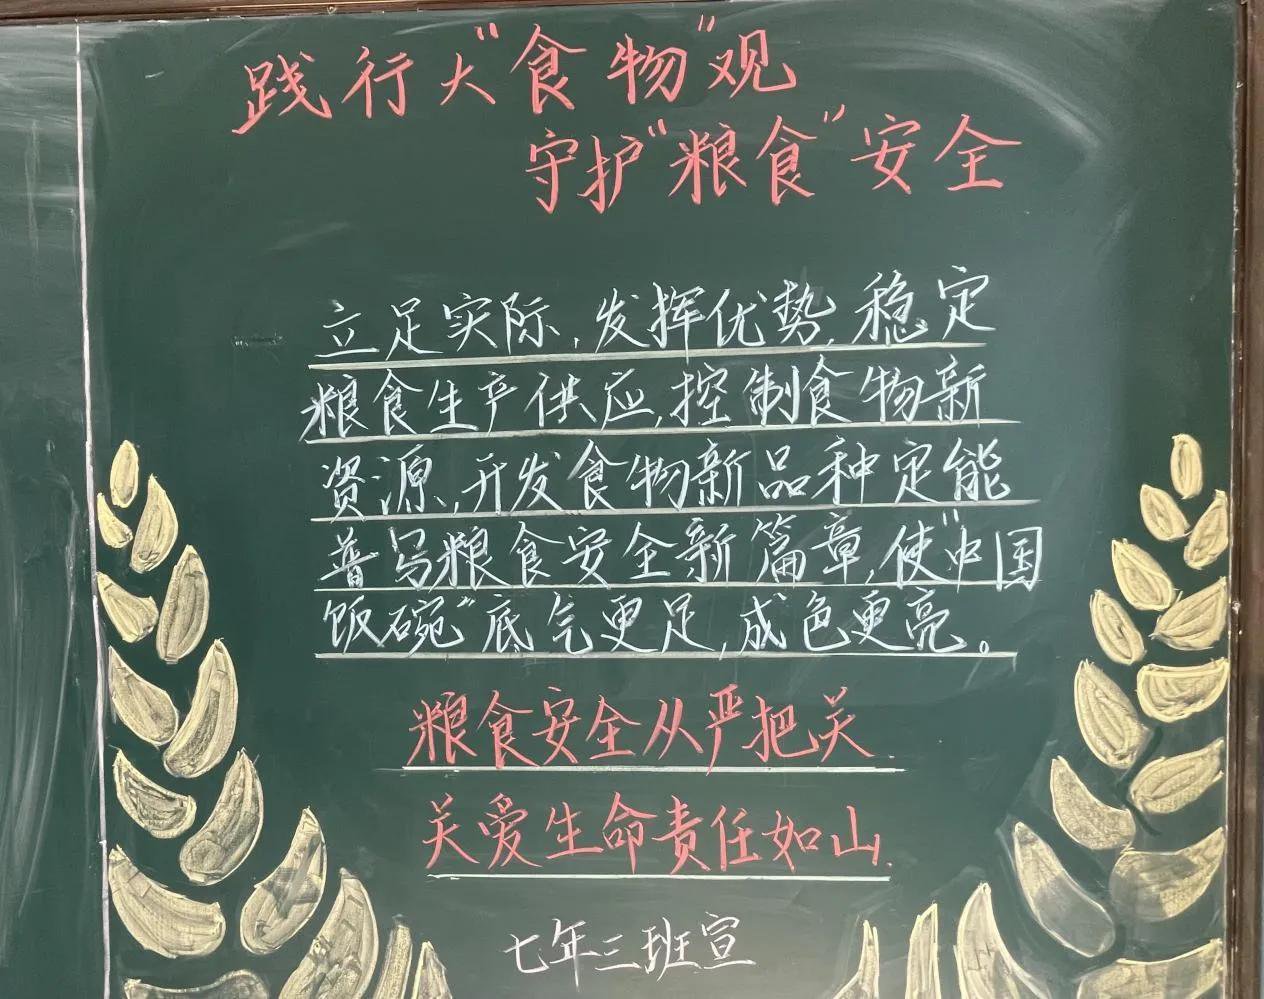 践行大“食物”观
守护“粮食”安全
立足实际,发挥优势,稳定
粮食生产供应,控制食物新
资源,开发食物新品种定能
普写粮食安全新篇章,使“中国
饭碗”底气更足,成色更亮。
粮食安全从严把关
关爱生命责任如山.
七年三班宣